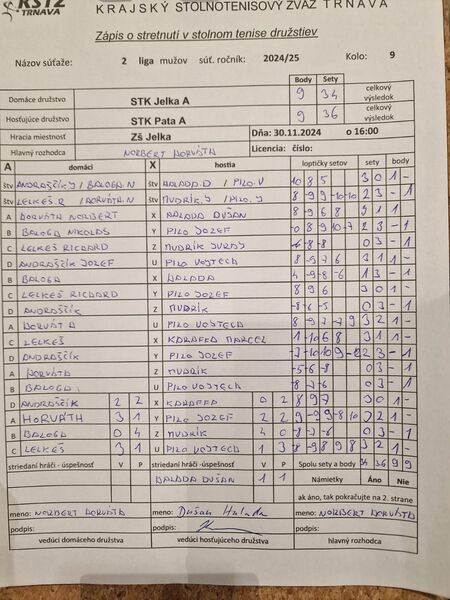 KSTZ TRNAVA KRAJSKÝ STOLNOTENISOVÝ ZVÄZ TRNAVA
Zápis o stretnutí v stolnom tenise družstiev
Názov súťaže: 2 liga mužov súť. ročník: 2024/25 Kolo: 9
Body Sety
Domáce družstvo STK Jelka A 9 34 celkový výsledok
Hosťujúce družstvo STK Pata A 9 36 celkový výsledok
Hracia miestnosť Zš Jelka Dňa: 30.11.2024 o 16:00
Hlavný rozhodca NORBERT HORVÁTH Licencia: číslo:
A domáci X hostia loptičky setov sety body
štv ANDRAŠČÍK J / BALOGH N štv HALADA D / PILO V 10 8 5 3 0 1 -
štv LELKEŠ R / HORVÁTH N štv MUDRÍK J / PILO J 2 3 - 1
A HORVÁTH NORBERT X HALADA DUŠAN 8 9 6 8 3 1 1
B BALOGH NIKOLAS Y PILO JOZEF 2 3 - 1
C LELKEŠ RICHARD Z MUDRÍK JURAJ -6 -8 -8 0 3 - 1
D ANDRAŠČÍK JOZEF U PILO VOJTECH 8 9 7 6 3 1 1 -
B BALOGH X HALADA 4 -9 -8 -6 1 3 - 1
C LELKEŠ RICHARD Y PILO JOZEF 8 9 6 3 0 1 -
D ANDRAŠČÍK Z MUDRÍK -8 -6 -5 0 3 - 1
A HORVÁTH U PILO VOJTECH 3 2 1 -
C LELKEŠ X KARAFFA MARCEL 3 1 1 -
D ANDRAŠČÍK Y PILO JOZEF 2 3 - 1
A HORVÁTH Z MUDRÍK -5 -6 -8 0 3 - 1
B BALOGH U PILO VOJTECH 0 3 - 1
D ANDRAŠČÍK 2 2 X KARAFFA 0 2 8 9 7 3 0 1 -
A HORVÁTH 3 1 Y PILO JOZEF 2 2 3 2 1 -
B BALOGH 0 4 Z MUDRÍK 4 0 0 3 - 1
C LELKEŠ 3 1 U PILO VOJTECH 1 3 3 2 1 -
striedaní hráči - úspešnosť V P striedaní hráči - úspešnosť V P Spolu sety a body 34 36 9 9
HALADA DUŠAN 1 1 Námietky Áno Nie
ak áno, tak pokračujte na 2. strane
meno: NORBERT HORVÁTH meno: Dušan Halada meno: NORBERT HORVÁTH
podpis: podpis: podpis:
vedúci domáceho družstva vedúci hosťujúceho družstva hlavný rozhodca